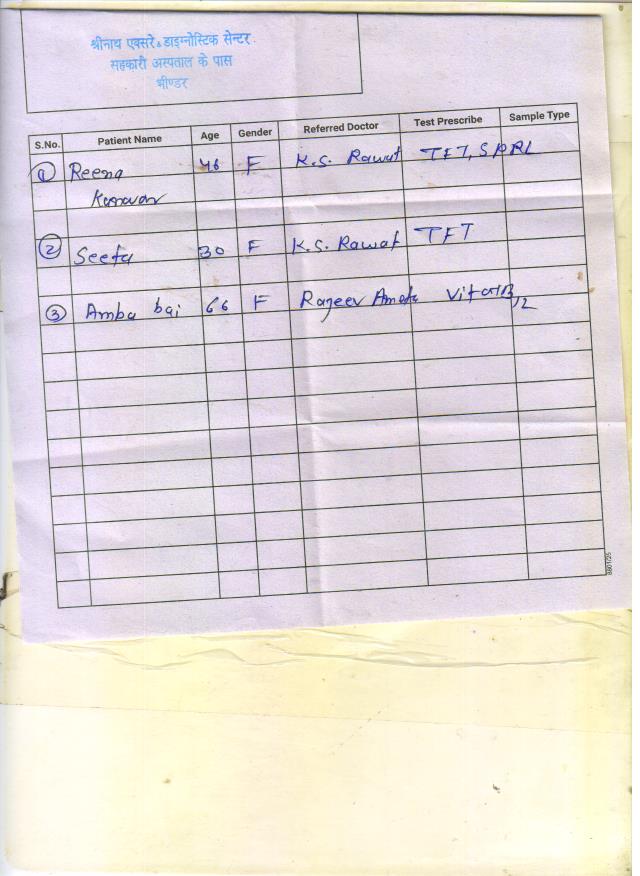 श्रीनाथ एक्सरे & डाइग्नोस्टिक सेन्टर
सहकारी अस्पताल के पास
भीण्डर
S.No. Patient Name Age Gender Referred Doctor Test Prescribe Sample Type
1 Reena 46 F K.S. Rawat TFT, S PRL
Kunwar
2 Seeta 30 F K.S. Rawat TFT
3 Amba bai 66 F Rajeev Ameta Vit B12
8601/25